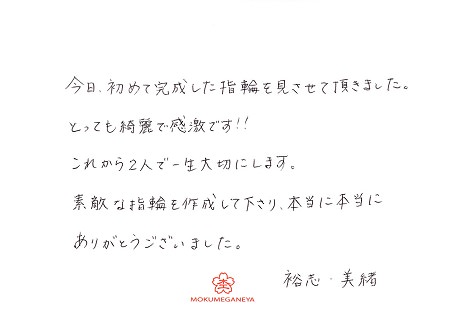 今日、初めて完成した指輪を見させて頂きました。
とっても綺麗で感激です!!
これから2人で一生大切にします。
素敵な指輪を作成して下さり、本当に本当に
ありがとうございました。
裕志・美緒
MOKUMEGANEYA